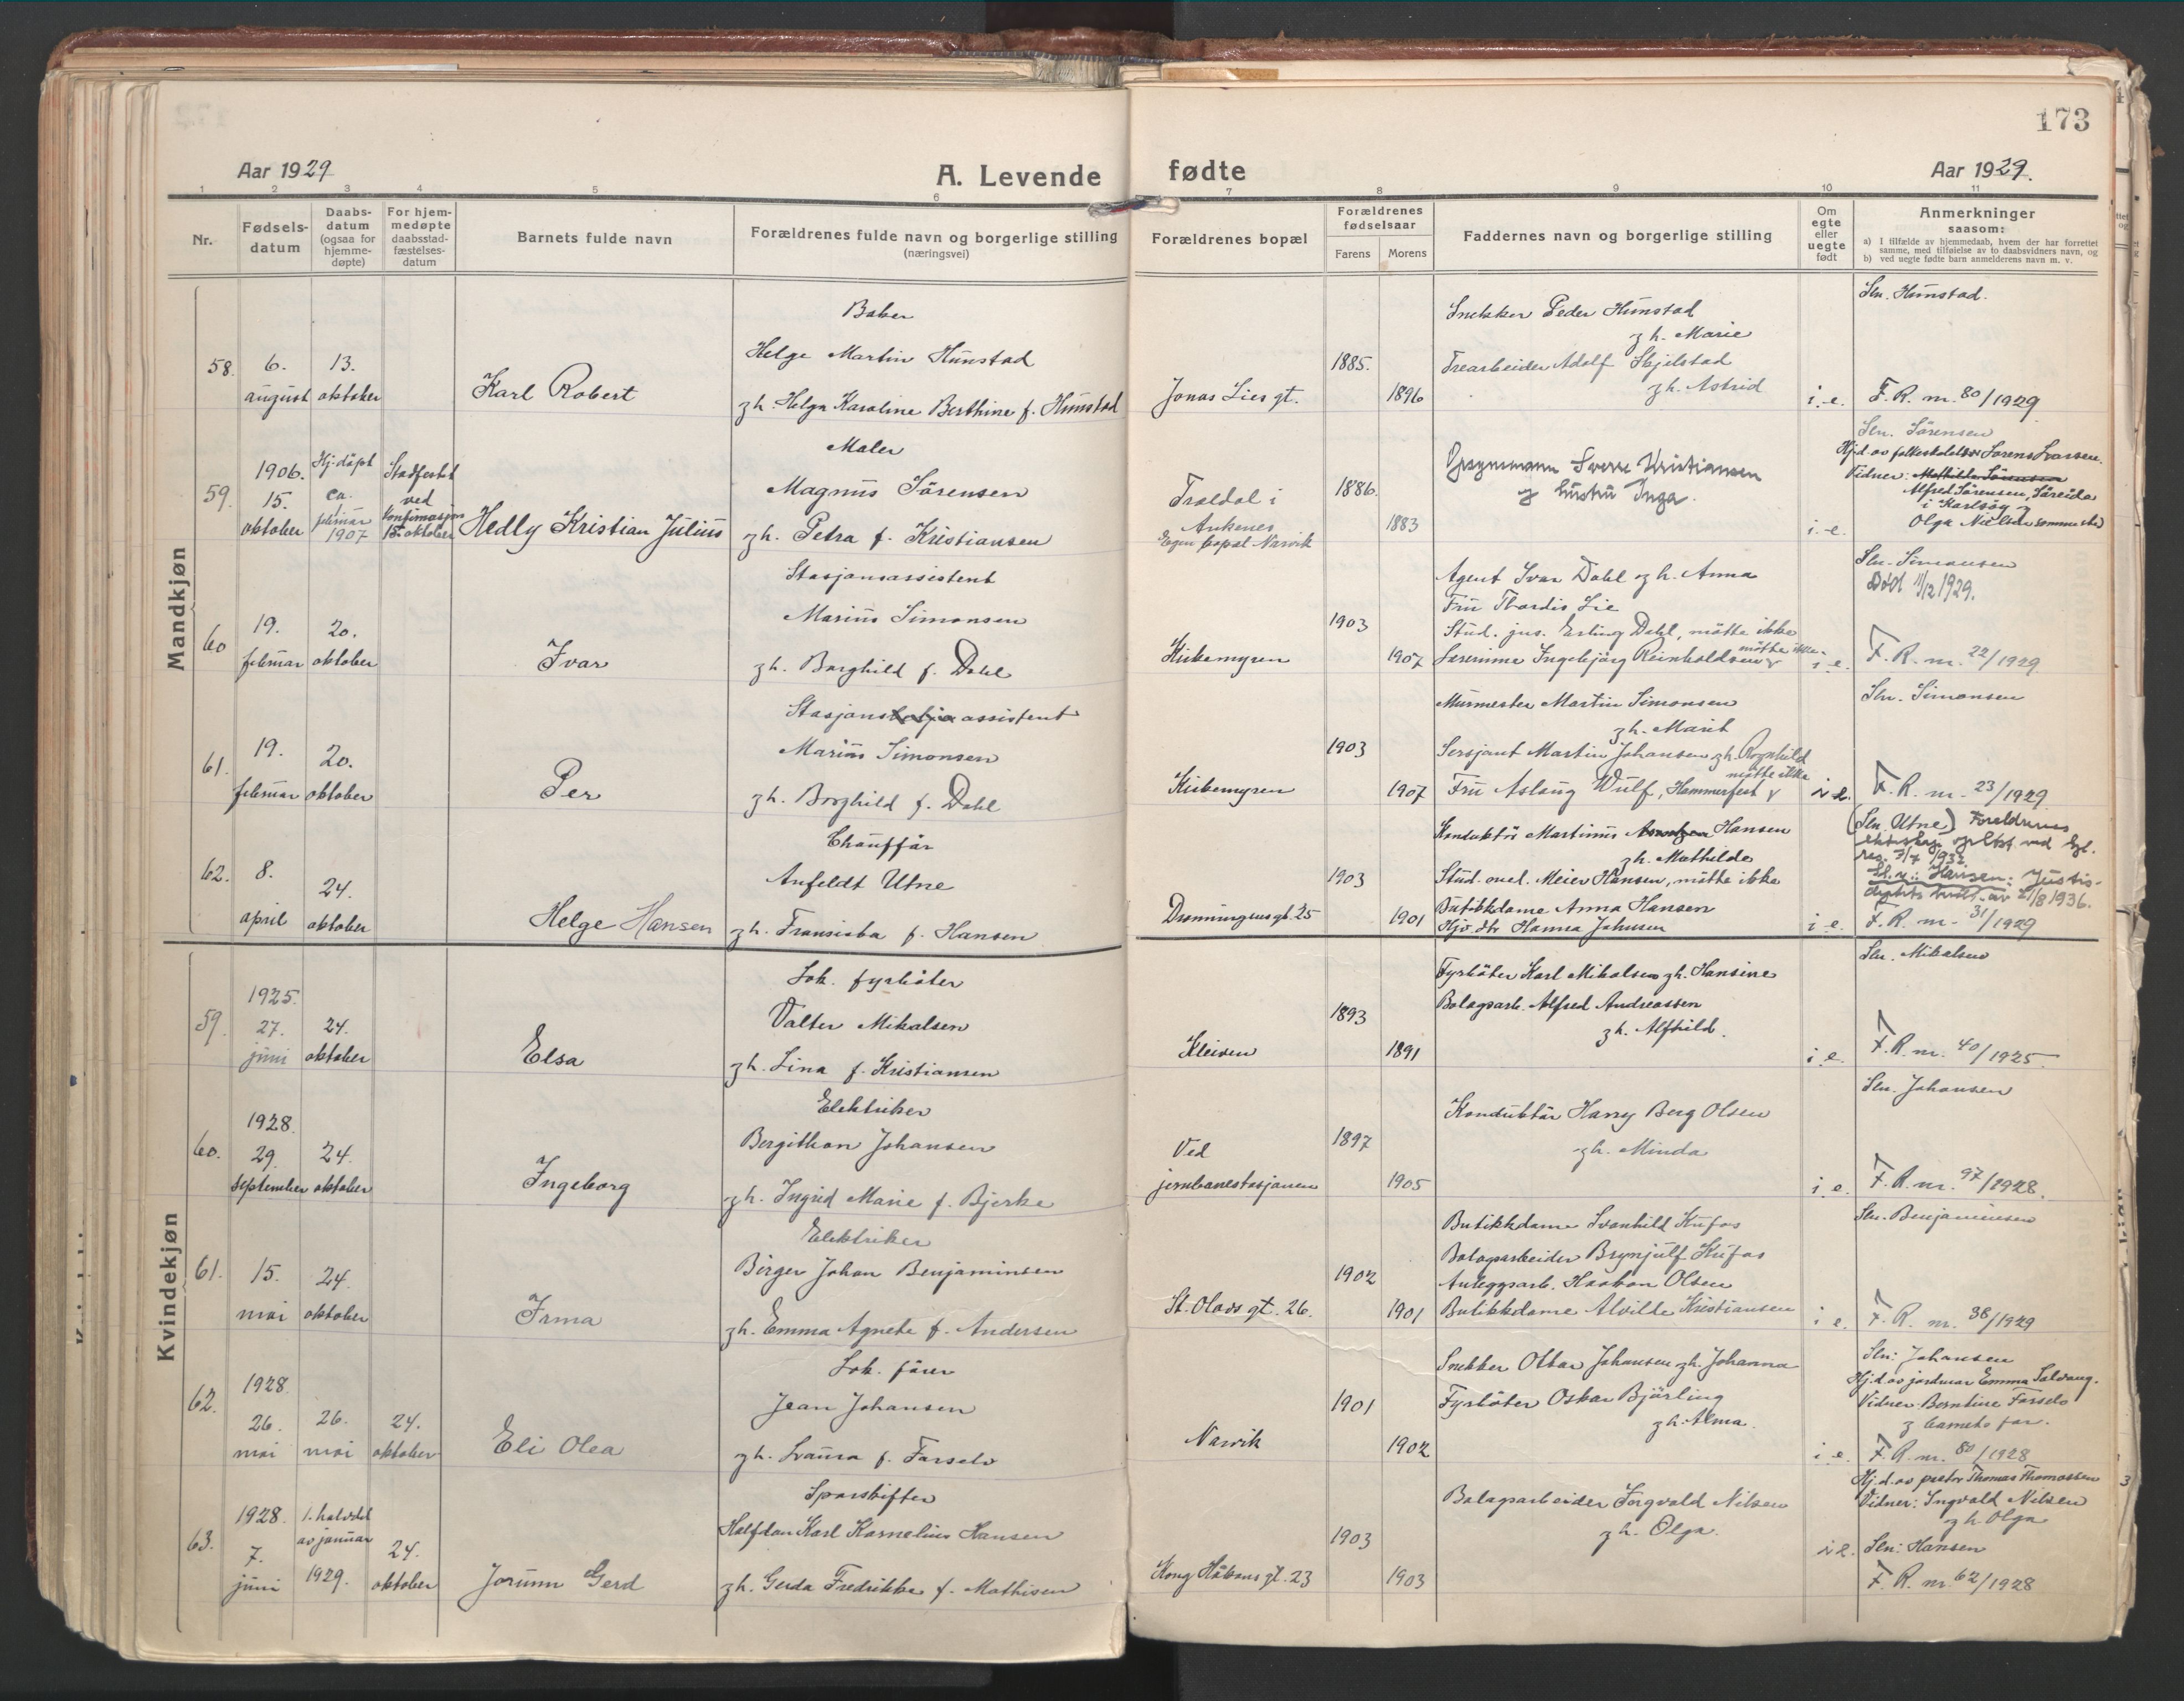 173
Aar 1929
A. Levende fødte
Aar 1929.
1 2 3 4 5 6 7 8 9 10 11
Nr.
Fødsels-
datum
Daabs-
datum
(ogsaa for
hjemme-
døpte)
For hjem-
medøpte
daabsstad-
fæstelses-
datum
Barnets fulde navn
Forældrenes fulde navn og borgerlige stilling
(næringsvei)
Forældrenes bopæl
Forældrenes
fødselsaar
Farens Morens
Faddernes navn og borgerlige stilling
Om
egte
eller
uegte
født
Anmerkninger
saasom:
a) I tilfælde av hjemmedaab, hvem der har forrettet
samme, med tilføielse av to daabsvidners navn, og
b) ved uegte fødte barn anmelderens navn m. v.
Mandkjøn
58.
6.
august
13.
oktober
Karl Robert
Baker
Helge Martin Hunstad
og h. Helga Karoline Berthine f. Hunstad
Jonas Lies gt.
1885.
1896
Snekker Peder Hunstad
og h. Marie
Trearbeider Adolf Skjelstad
og h. Astrid
i. e.
Sln. Hunstad.
F. R. nr. 80/1929
59.
1906.
15.
oktober
Hj. døpt
ca.
1
februar
1907
Stadfestet
ved
Konfirmasjon
15. oktober
Hedly Kristian Julius
Maler
Magnus Sørensen
og h. Petra f. Kristiansen
Traldal i
Ankenes
Egen bopel Narvik
1886.
1883
Sverre Kristiansen
og hustru Inga.
i. e.
Sln. Sørensen
Hj. d. av folkeskolelærer Sørens Larsen.
Vidner: Mathilde Sørensen
Alfred Sørensen, Søreida
i Karlsøy og
Olga Nielsen sammested
60
19.
februar
20.
oktober
Ivar
Stasjonsassistent
Marius Simonsen
og h. Borghild f. Dahl
Kirkemyren
1903
1907
Agent Ivar Dahl og h. Anna
Fru Thordis Lie
Stud. jus. Erling Dahl, møtte ikke
Lærerinne Ingebjørg Reinholdsen møtte ikke.
i. e.
Sln. Simonsen
Død 11/12 1929.
F. R. nr. 22/1929
61.
19.
februar
20.
oktober
Per
Stasjonsassistent
Marius Simonsen
og h. Borghild f. Dahl
Kirkemyren
1903
1907
Murmester Martin Simonsen
og h. Marit
Sersjant Martin Johansen og h. Ragnhild
møtte ikke
Fru Aslaug Wulf, Hammerfest
i e.
Sln. Simonsen
F. R. nr. 23/1929
62.
8.
april
24.
oktober
Helge Hansen
Chauffør
Anfeldt Utne
og h. Fransiska f. Hansen
Dronningensgt. 25
1903
1901
Konduktør Martinus Hansen
og h. Mathilde
Stud. med. Meier Hansen, møtte ikke
Butikkdame Anna Hansen
Hjv. dtr Hanna Johnsen
i e.
(Sln. Utne) Foreldrenes
ekteskap opløst ved
res. 7/7 1932.
Sl. n.: Hansen: Justis-
av 21/8 1936.
F. R. nr. 31/1929
Kvindekjøn
59.
1925.
27.
juni
24.
oktober
Elsa
Lok. fyrbøter
Valter Mikalsen
og h. Lina f. Kristiansen
Kleiven
1893
1891
Fyrbøter Karl Mikalsen og h. Hansine
Bolagsarb. Alfred Andreassen
og h. Alfhild.
i e.
Sln. Mikalsen
F. R. nr. 40/1925
60.
1928.
29.
september
24.
oktober
Ingeborg
Elektriker
Bergithon Johansen
og h. Ingrid Marie f. Bjerke
Ved
jernbanestasjonen
1897
1905
Konduktør Harry Berg Olsen
og h. Minda
i. e.
Sln. Johansen
F. R. nr. 97/1928.
61.
15.
mai
24.
oktober
Irma
Elektriker
Birger Johan Benjaminsen
og h. Emma Agnete f. Andersen
St. Olavs gt. 26.
1902
1901
Butikkdame Svanhild Kufos
Bolagsarbeider Brynjulf Kufos
Anleggsarb. Haakon Olsen
Butikkdame Alvilde Kristiansen
i e.
Sln. Benjaminsen
F. R. nr. 38/1929
62.
1928.
26.
mai
26.
mai
24.
oktober
Eli Olea
Lok. fører
Jean Johansen
og h. Laura f. Farselv
Narvik
1901
1902
Snekker Ottar Johansen og h. Johanna
Fyrbøter Oskar Bjørling
og h. Alma.
i e.
Sln: Johansen
Hj. d. av jordmor Emma Solvang.
Vidner Berntine Farselv
og barnets far.
F. R. nr. 80/1928
63.
1928.
7.
juni
1. halvdel
av januar
1929.
24.
oktober
Jorunn Gerd
Sporskifter
Halfdan Karl Kornelius Hansen
og h. Gerda Fredrikke f. Mathisen
Kong Håkons gt. 23
1903
1903
Bolagsarbeider Ingvald Nilsen
og h. Olga.
i e.
Hj. d. av pastor Thomas Thomassen
Vidner: Ingvald Nilsen
og h. Olga
Sln: Hansen
F. R. nr. 62/1928